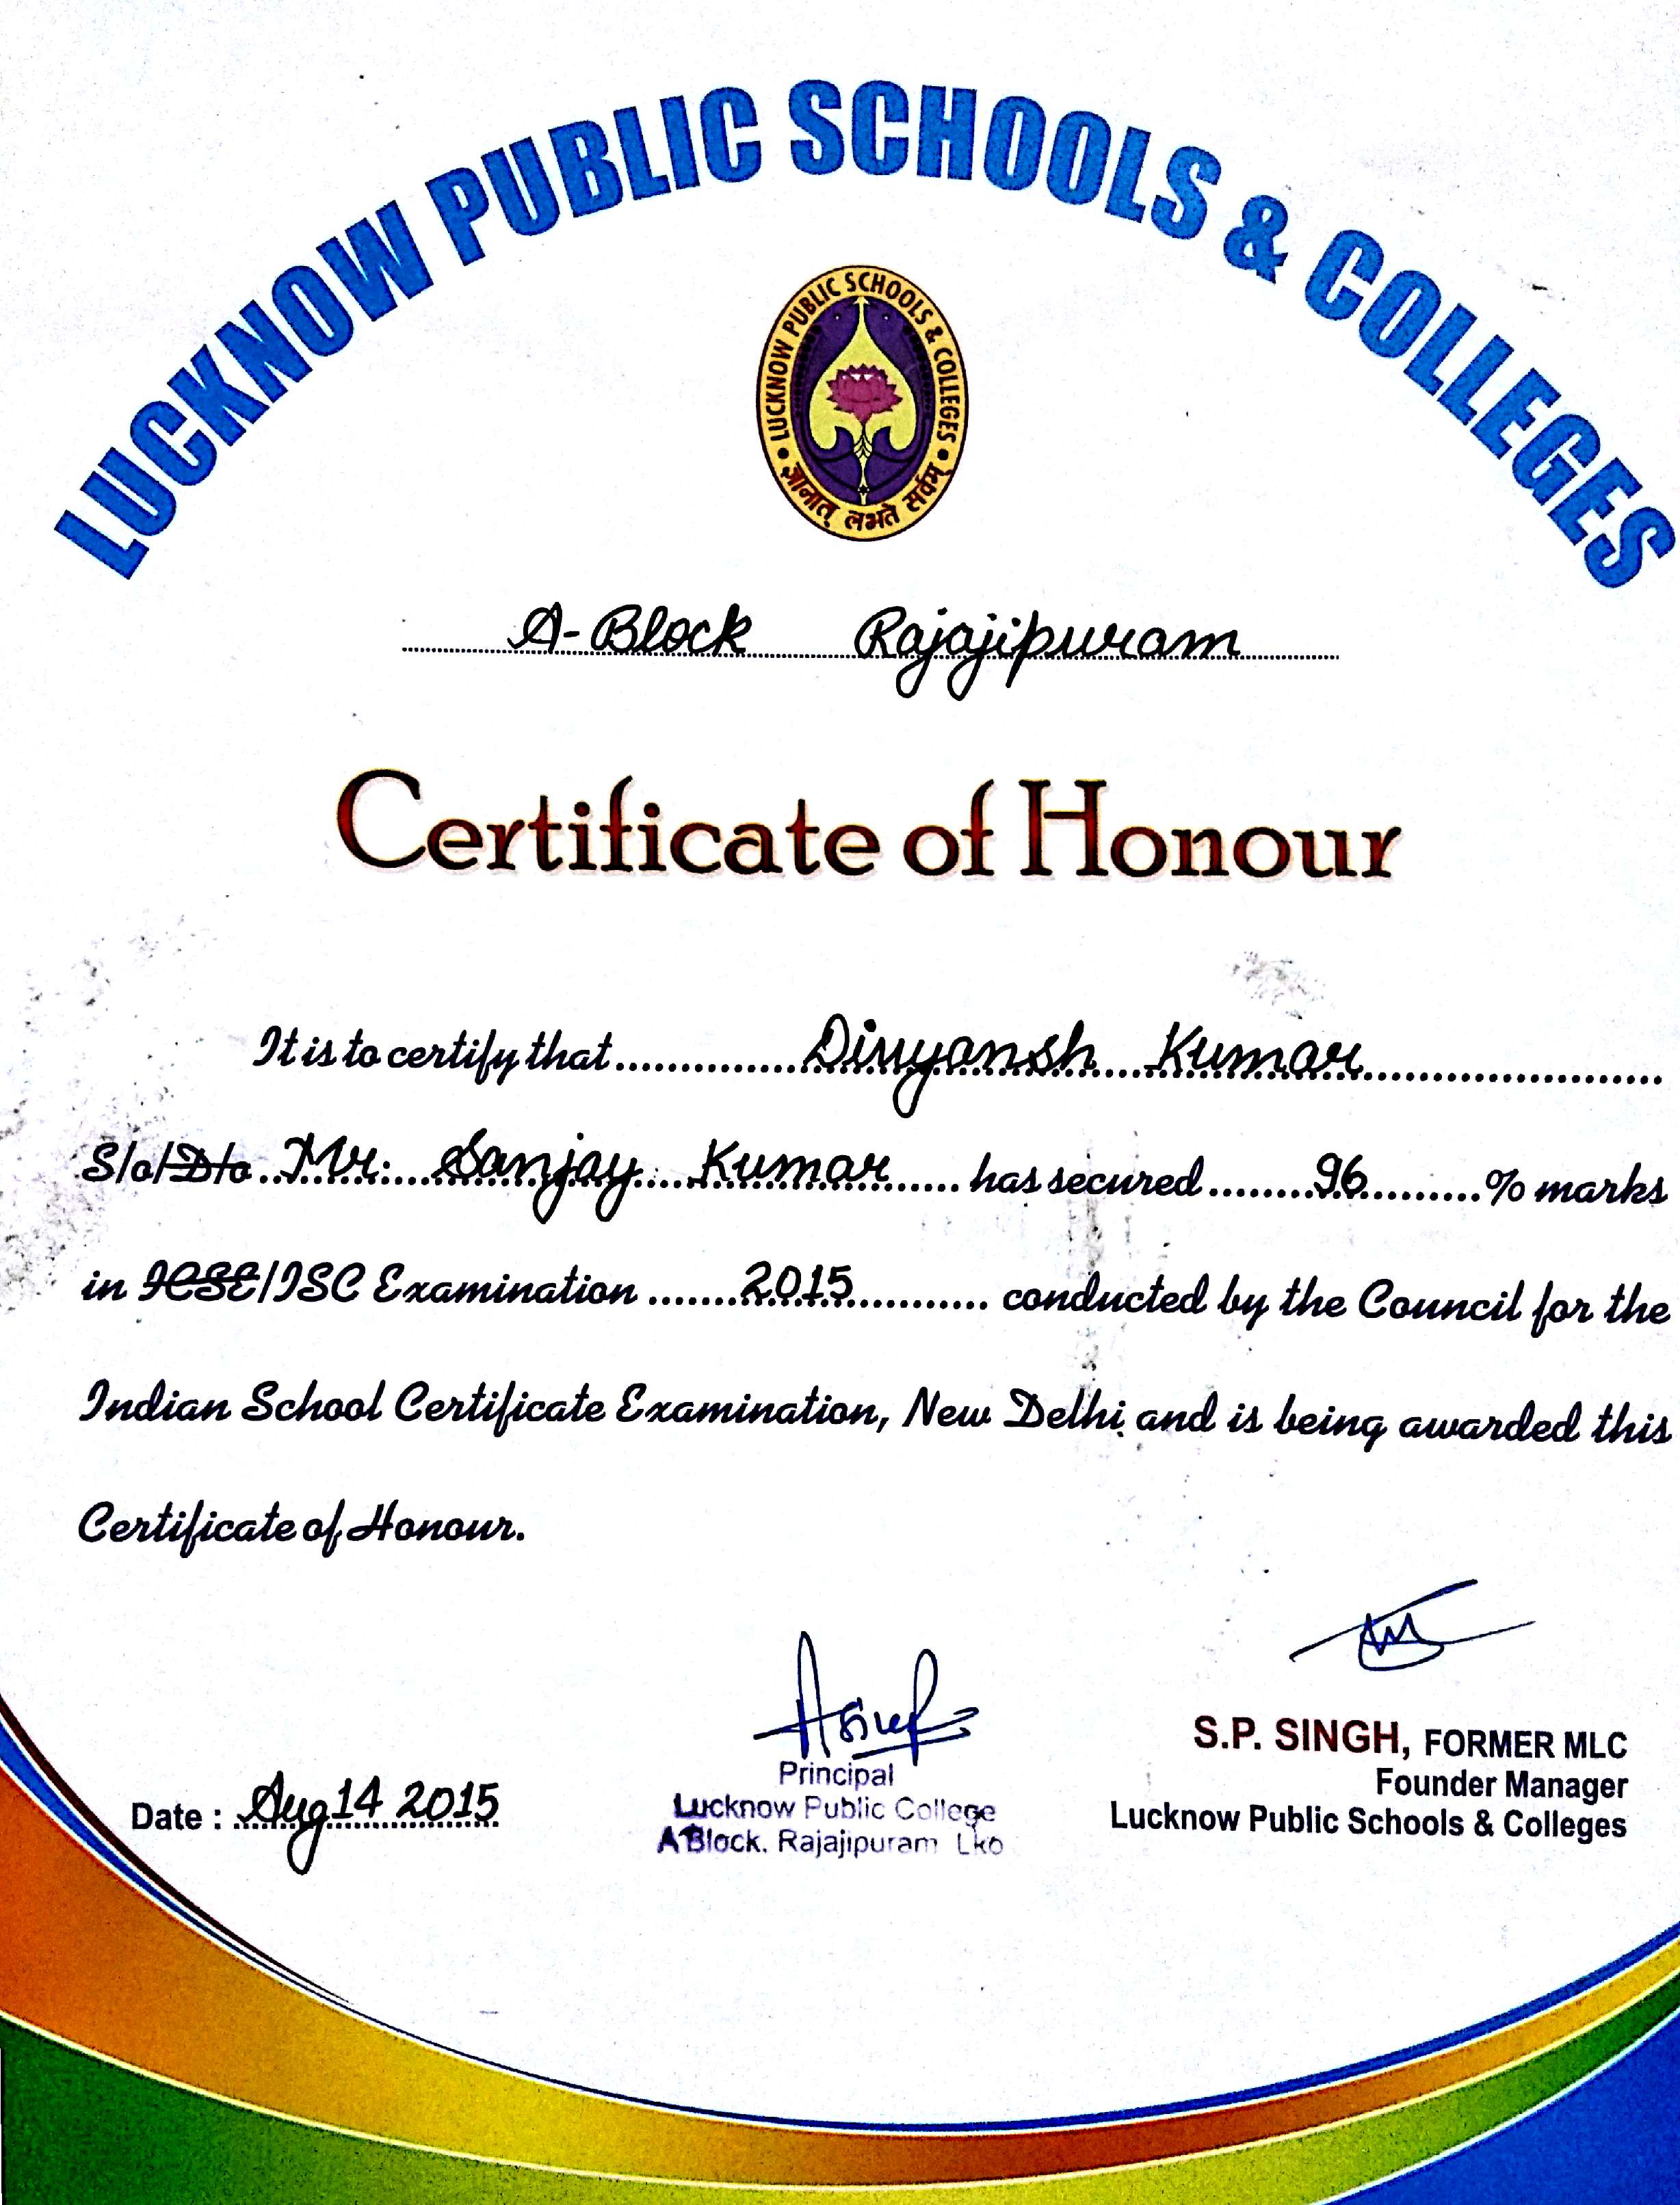 LUCKNOW PUBLIC SCHOOLS & COLLEGES
LUCKNOW PUBLIC SCHOOLS & COLLEGES
ज्ञानात् लभते सर्वम्
A-Block Rajajipuram
Certificate of Honour
It is to certify that Divyansh Kumar
S/o/D/o Mr. Sanjay Kumar has secured 96 % marks
in ICSE/ISC Examination 2015 conducted by the Council for the
Indian School Certificate Examination, New Delhi and is being awarded this
Certificate of Honour.
Date : Aug 14 2015
Principal
Lucknow Public College
A Block, Rajajipuram Lko
S.P. SINGH, FORMER MLC
Founder Manager
Lucknow Public Schools & Colleges